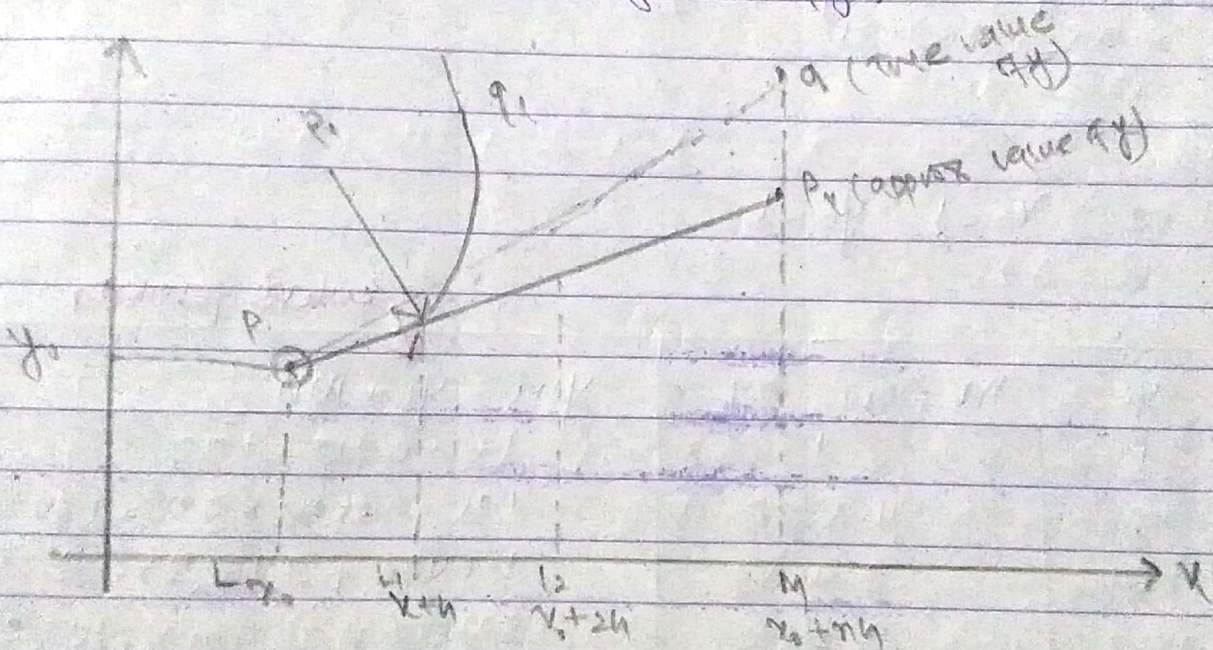 q (true value of y)
q₁
P₁
Pₙ (approx value of y)
P
y₀
L x₀
L₁ x+h
L₂ x₀+2h
M x₀+nh
X